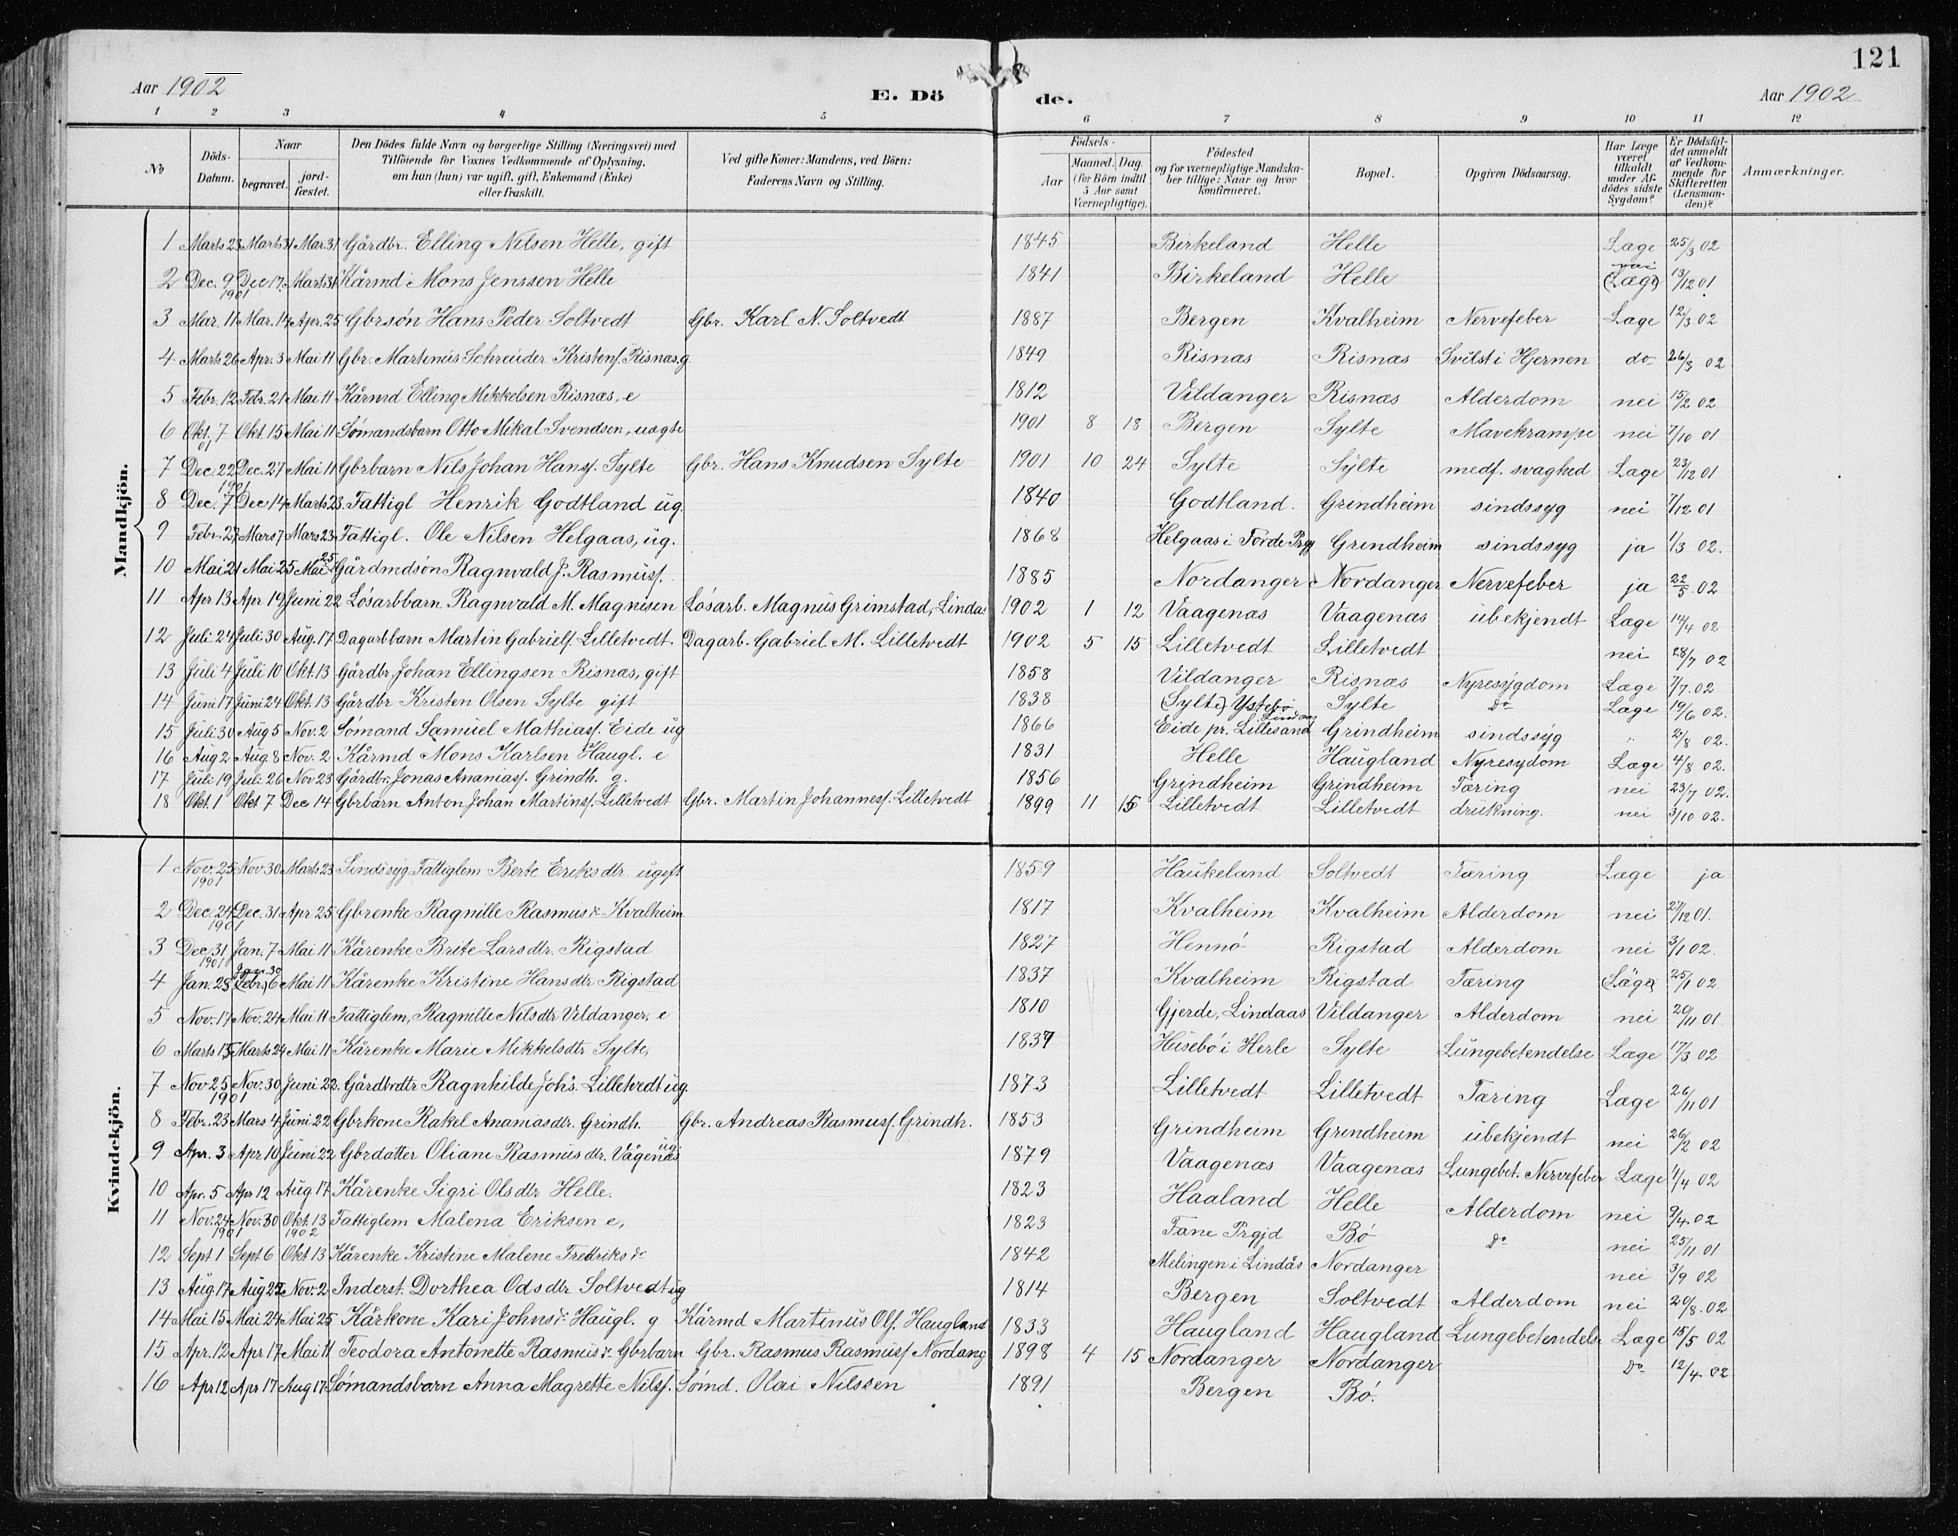 121
Aar 1902 E. Dö de. Aar 1902
1 2 3 4 5 6 7 8 9 10 11 12
No Döds-Datum. Naar begravet. jord-fæstet. Den Dödes fulde Navn og borgerlige Stilling (Næringsvei) med Tilföiende for Voxnes Vedkommende af Oplysning, om han (hun) var ugift, gift, Enkemand (Enke) eller fraskilt. Ved gifte Koner: Mandens, ved Börn: Faderens Navn og Stilling. Födsels- Aar Maaned. Dag. (for Börn indtil 5 Aar samt Værnepligtige). Födested og for værnepligtige Mandskaber tillige: Naar og hvor konfirmeret. Bopæl. Opgiven Dödsaarsag. Har Læge været tilkaldt under Afdödes sidste Sygdom? Er Dödsfaldet anmeldt af Vedkommende for Skifteretten (Lensmanden)? Anmærkninger.
Mandkjön.
1 Marts 23 Marts 31 Mar. 31 Gårdbr. Elling Nilsen Helle, gift 1845 Birkeland Helle Læge 25/3 02
2 Dec. 9 1901 Dec 17 Marts 31 Kårmd Mons Jenssen Helle 1841 Birkeland Helle nei (Læge) 13/12 01
3 Mar. 11 Mar. 14 Apr. 25 Gbrsøn Hans Peder Soltvedt Gbr. Karl N. Soltvedt 1887 Bergen Kvalheim Nervefeber Læge 12/3 02
4 Marts 26 Apr. 3 Mai 11 Gbr. Martinus Schreuder Kristens. Risnæs, g 1849 Risnæs Risnæs Svulst i Hjernen do 26/3 02
5 Febr. 12 Febr. 21 Mai 11 Kårmd Elling Mikkelsen Risnæs, e 1812 Vildanger Risnæs Alderdom nei 15/2 02
6 Okt. 7 01 Okt. 15 Mai 11 Sømandsbarn Otto Mikal Svendsen, uægte 1901 8 18 Bergen Sylte Mavekrampe nei 7/10 01
7 Dec. 22 1901 Dec. 27 Mai 11 Gbrbarn Nils Johan Hanss. Sylte Gbr. Hans Knudsen Sylte 1901 10 24 Sylte Sylte medf. svaghed Læge 23/12 01
8 Dec. 7 Dec 14 Marts 23 Fattigl Henrik Godtland ug. 1840 Godtland. Grindheim sindssyg nei 7/12 01
9 Febr. 27 Mars 7 Mars 23 Fattigl. Ole Nilsen Helgaas, ug. 1868 Helgaas i Førde Prgj Grindheim sindssyg ja 1/3 02.
10 Mai 21 Mai 25 Mai 25 Gårdmdsøn Ragnvald J. Rasmuss. 1885 Nordanger Nordanger Nervefeber ja 22/5 02
11 Apr 13 Apr 19 Juni 22 Løsarbbarn Ragnvald M. Magnusen Løsarb. Magnus Grimstad, Lindås 1902 1 12 Vaagenæs Vaagenæs ubekjendt Læge 14/4 02
12 Juli 24 Juli 30 Aug. 17 Dagarbbarn Martin Gabriels. Lilletvedt. Dagarb. Gabriel M. Lilletvedt 1902 5 15 Lilletvedt Lilletvedt nei 28/7 02
13 Juli 4 Juli 10 Okt. 13 Gårdbr. Johan Ellingsen Risnæs, gift 1858 Vildanger Risnæs Nyresygdom Læge 7/7 02
14 Juni 17 Juni 24 Okt. 13 Gårdbr Kristen Olsen Sylte gift 1838 (Sylte) Ystebø Lindaas Sylte do Læge 19/6 02.
15 Juli 30 Aug 5 Nov. 2 Sømand Samuel Mathiass. Eide ug 1866 Eide pr. Lillesand Grindheim sindssyg " 2/8 02.
16 Aug 2 Aug. 8 Nov. 2 Kårmd Mons Karlsen Haugl. e 1831 Helle Haugland Nyresydom Læge 4/8 02.
17 Juli 19 Juli 26 Nov 23 Gårdbr. Jonas Ananiass. Grindh. g. 1856 Grindheim Grindheim Tæring nei 23/7 02.
18 Okt. 1 Okt 7 Dec 14 Gbrbarn Anton Johan Martinss. Lilletvedt Gbr. Martin Johanness. Lilletvedt 1899 11 15 Lilletvedt Lilletvedt drukning. nei 3/10 02.
Kvindekjön.
1 Nov. 25 1901 Nov 30 Marts 23 Sindssyg Fattiglem Berte Eriksdtr. ugift 1859 Haukeland Soltvedt Tæring Læge ja
2 Dec. 24 1901 Dec. 31 Apr 25 Gbrenke Ragnille Rasmusdr Kvalheim 1817 Kvalheim Kvalheim Alderdom nei 27/12 01.
3 Dec. 31 1901 Jan. 7 Mai 11 Kårenke Brite Larsdtr. Rigstad 1827 Hennø Rigstad Alderdom nei 3/1 02.
4 Jan. 23 Jan. 30 (Febr.) 6 Mai 11 Kårenke Kristine Hansdtr Rigstad 1837 Kvalheim Rigstad Tæring (Læge) 25/1 02
5 Nov. 17 Nov. 24 Mai 11 Fattiglem, Ragnille Nilsdtr Vildanger, e 1810 Gjerde, Lindaas Vildanger Alderdom nei 20/11 01.
6 Marts 15 Marts 24 Mai 11 Kårenke Marie Mikkelsdtr Sylte, 1837 Husebø i Herle Sylte Lungebetendelse Læge 17/3 02
7 Nov 25 1901 Nov. 30 Juni 22. Gårdbrdtr Ragnhilde Johs. Lilletvedt ug. 1873 Lilletvedt Lilletvedt Tæring Læge 26/11 01
8 Febr. 23 Mars 4 Juni 22 Gbrkone Rakel Ananiasdr. Grindh. Gbr. Andreas Rasmuss. Grindh. 1853 Grindheim Grindheim ubekjendt nei 26/2 02
9 Apr. 3 Apr 10 Juni 22 Gbrdatter Oliane Rasmusdtr. Vågenæs ug 1879 Vaagenæs Vaagenæs Lungebet. Nervefeber Læge 4/4 02
10 Apr. 5 Apr 12 Aug 17 Kårenke Sigri Olsdtr Helle. 1823 Haaland Helle Alderdom nei 9/4 02
11 Nov. 24 1901 Nov. 30 Okt. 13 1902 Fattiglem Malena Eriksen e, 1823 Fane Prgjd Bø do nei 25/11 01
12 Sept 1 Sept 6 Okt 13 Kårenke Kristine Malene Fredriksdr 1842 Melingen i Lindås Nordanger nei 3/9 02
13 Aug. 17 Aug 22 Nov. 2 Inderst. Dorthea Odsdtr Soltvedt ug 1814 Bergen Soltvedt Alderdom nei 20/8. 02
14 Mai 15 Mai 24 Mai 25 Kårkone Kari Johnsdr Haugl. g Kårmd Martinus Ols. Haugland 1833 Haugland Haugland Lungebetendelse Læge 15/5 02
15 Apr. 12 Apr 17 Mai 11 Teodora Antonette Rasmusdr. Gbrbarn Gbr. Rasmus Rasmuss Nordang 1898 4 15 Nordanger Nordanger do 12/4 02
16 Apr 12 Apr 17 Aug 17 Sømandsbarn Anna Magrette Nilss. Sømd. Olai Nilssen 1891 Bergen Bø.